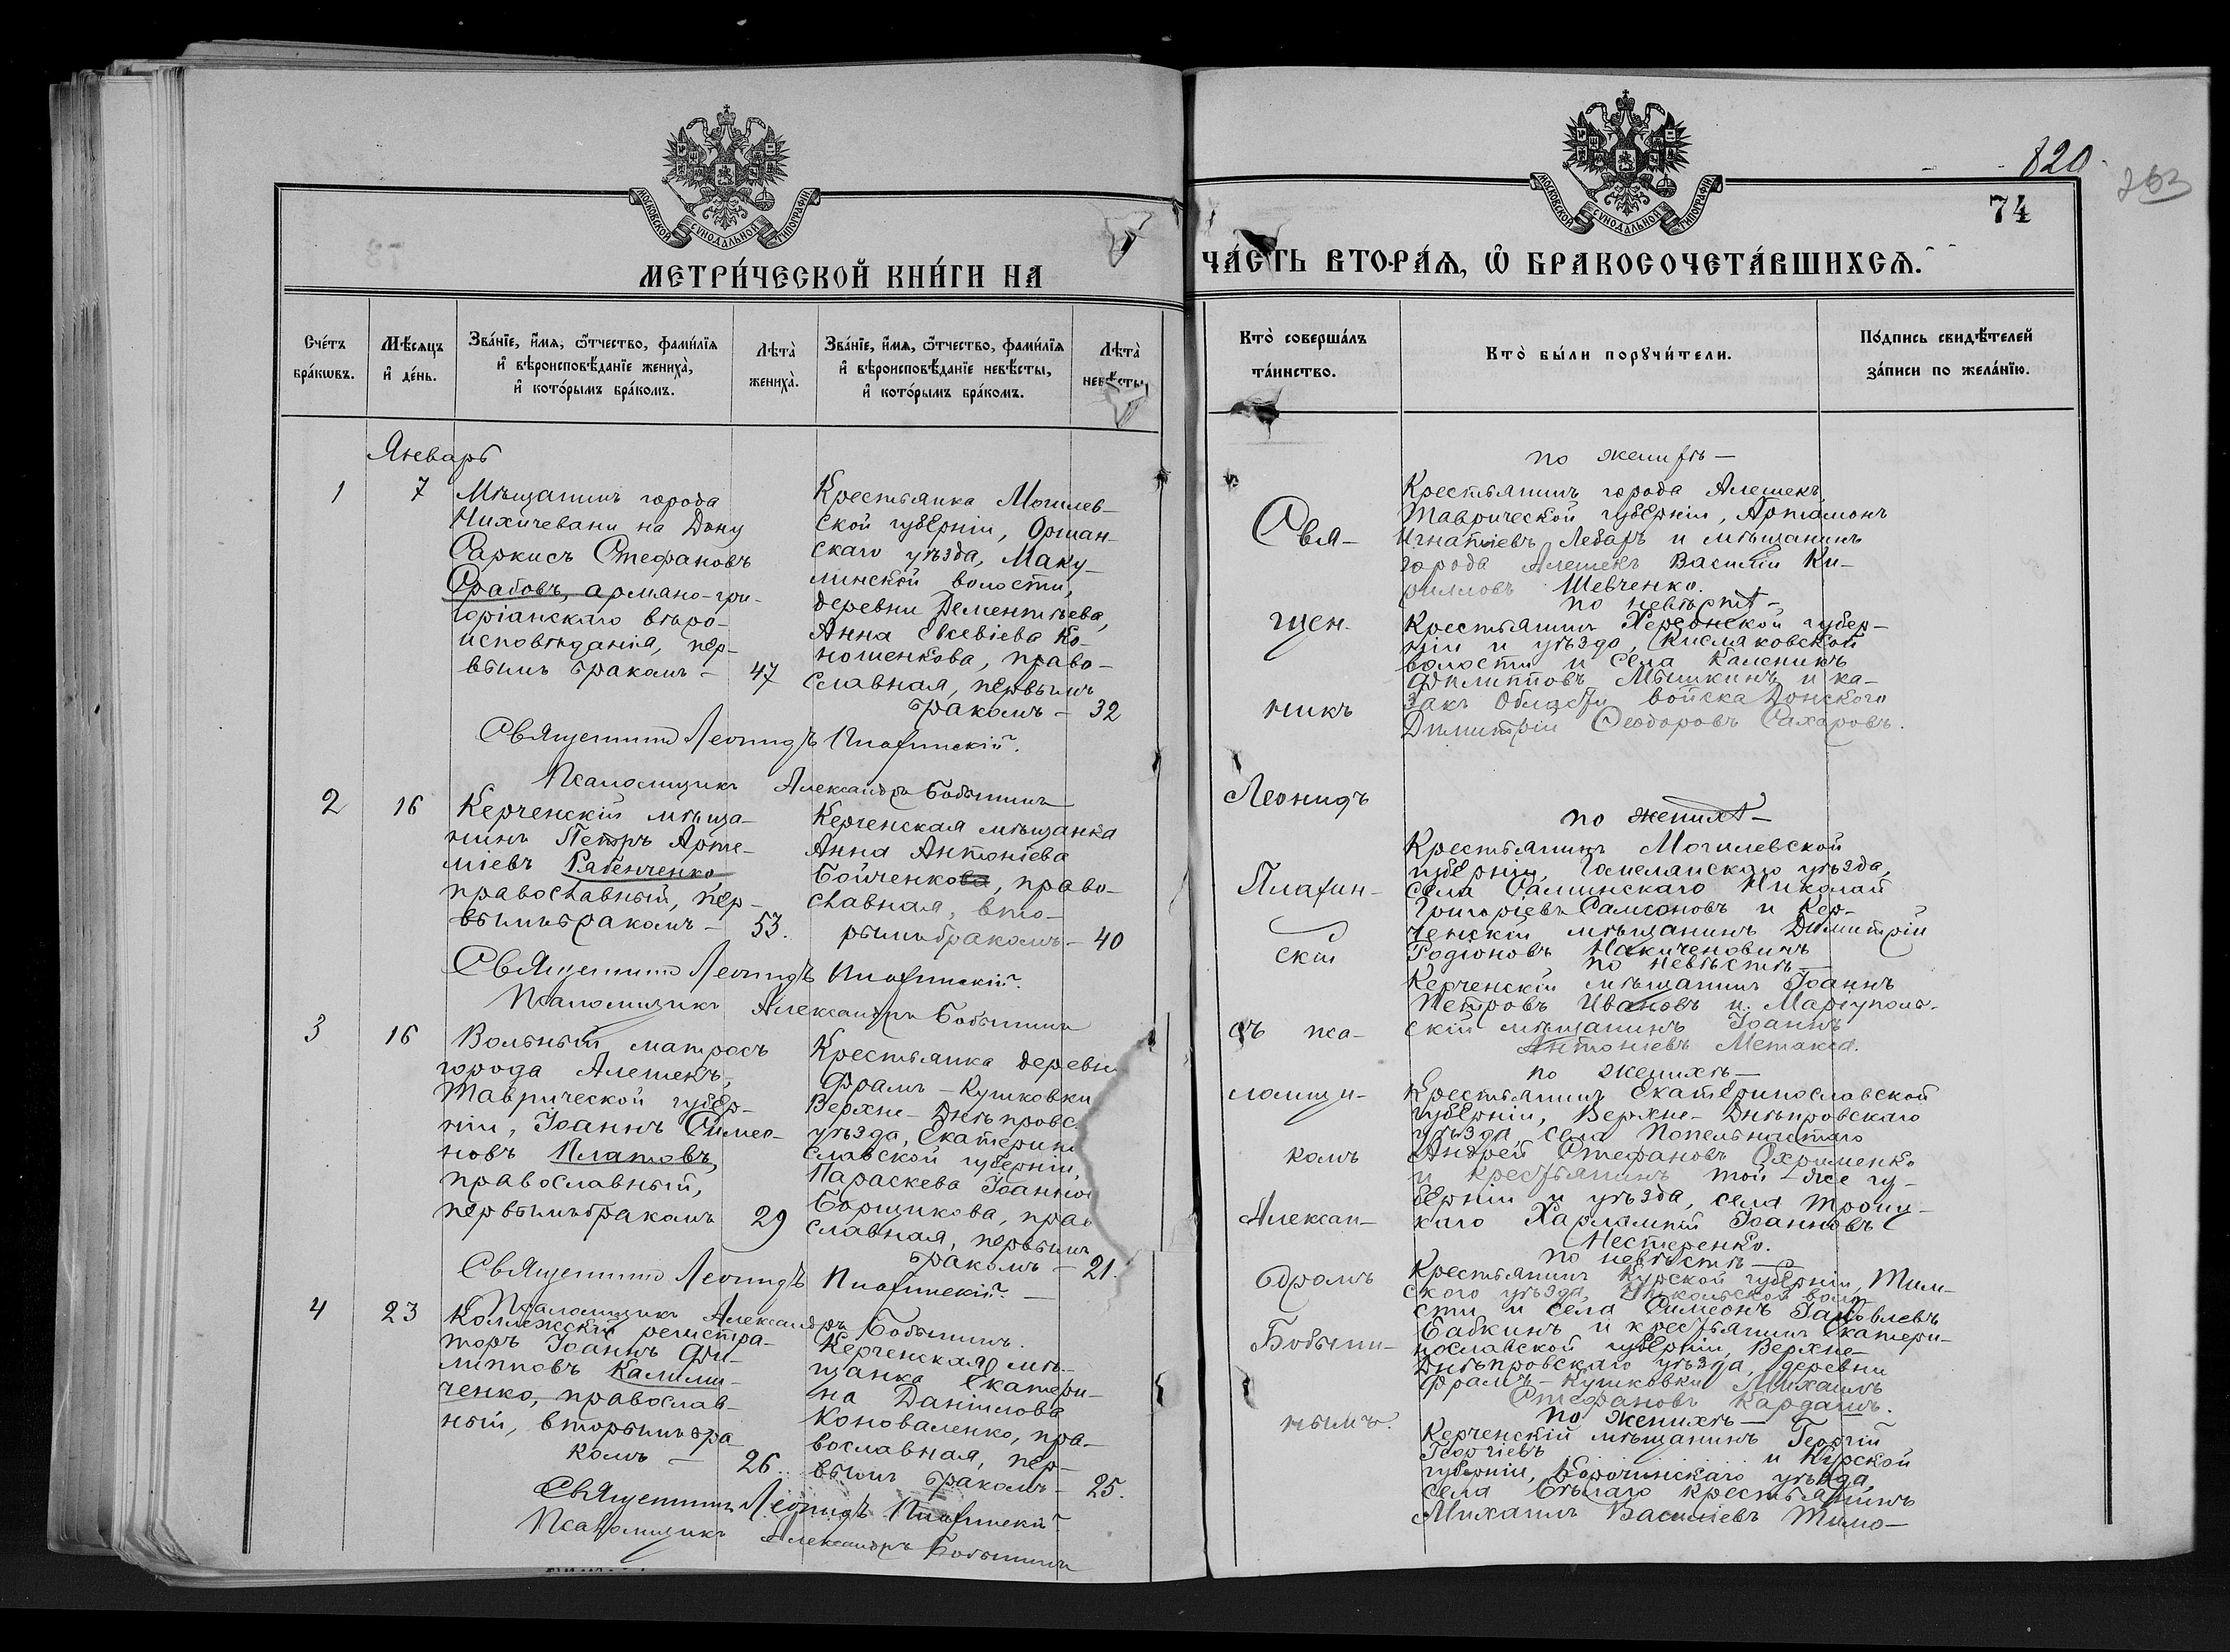 МОСКОВСКОЙ СУНОДАЛЬНОЙ ТИПОГРАФИИ
МЕТРИ́ЧЕСКОЙ КНИ́ГИ НА
Сче́тъ бра́кωвъ.
Мѣ́сяцъ и҆ де́нь.
Зва́нїе, и҆́мѧ, ѻ҆́тчество, фами́лїѧ
и҆ вѣроисповѣ́данїе жениха̀,
и҆ кото́рымъ бра́комъ.
Лѣта̀ жениха̀.
Зва́нїе, и҆́мѧ, ѻ҆́тчество, фами́лїѧ
и҆ вѣроисповѣ́данїе невѣ́сты,
и҆ кото́рымъ бра́комъ.
Лѣта̀ невѣ́сты
Январь
1
7
Мѣщанинъ города
Нихичевани на Дону
Саркисъ Стефановъ
Срабовъ, армяно-гри-
горіанскаго вѣро-
исповѣданія, пер-
вымъ бракомъ -
47
Крестьянка Могилев-
ской губерніи, Оршан-
скаго уѣзда, Маку-
линской волости,
деревни Дементьева,
Анна Евсевіева Ко-
ношенкова, право-
славная, первымъ
бракомъ -
32
Священникъ Леонидъ
Псаломщикъ Александръ Бобынинъ
2
16
Керченскій мѣща-
нинъ Петръ Арте-
міевъ Рабенченко
православный, пер-
вымъ бракомъ -
53.
Керченская мѣщанка
Анна Антоніева
Бойченкова, право-
славная, вто-
рымъ бракомъ -
40
Священникъ Леонидъ
Псаломщикъ Александръ Бобынинъ
3
16
Вольный матросъ
города Алешекъ,
Таврической губер-
ніи, Іоаннъ Симео-
новъ Платовъ,
православный,
первымъ бракомъ
29
Крестьянка деревн
Фрамъ-Кушковки
Верхне-Днѣпровс
уѣзда, Екатерин
славской губерніи,
Параскева Іоаннов
Борщикова, прав
славная, первымъ
бракомъ -
21.
Священникъ Леонидъ
Псаломщикъ Александръ Бобынинъ.
4
23
Коллежскій регистра-
торъ Іоаннъ Фи-
липповъ Калини-
ченко, православ-
ный, вторымъ бра-
комъ -
26.
Керченская мѣ-
щанка Екатери-
на Даніилова
Коноваленко, пра-
вославная, пер-
вымъ бракомъ -
25.
Священникъ Леонидъ
Псаломщикъ Александръ Бобынинъ
820
263
74
МОСКОВСКОЙ СУНОДАЛЬНОЙ ТИПОГРАФИИ
ЧА́СТЬ ВТОРА́Ѧ, Ѡ҆ БРАКОСОЧЕТА́ВШИХСѦ.
Кто̀ соверша́лъ та́инство.
Кто̀ бы́ли порꙋчи́тели.
По́дпись свидѣ́телей за́писи по жела́нїю.
Свя-
щен-
никъ
Леонидъ
ский
съ пса-
ломщи-
комъ
Алексан-
дромъ
Бобыни-
нымъ.
по женихѣ -
Крестьянинъ города Алешекъ,
Таврической губерніи, Артамонъ
Игнатіевъ Лебарь и мѣщанинъ
города Алешекъ Василій Ки-
рилловъ Шевченко.
по невѣстѣ -
Крестьянинъ Херсонской губер-
ніи и уѣзда, Кисляковской
волости и села Каленикъ
Филипповъ Мышкинъ и ка-
закъ Области войска Донского
Димитрій Феодоровъ Сахаровъ.
по женихѣ -
Крестьянинъ Могилевской
губерніи, Гомельскаго уѣзда,
села Николай
Григоріевъ Самсоновъ и Кер-
ченскій мѣщанинъ Димитрій
Родіоновъ
по невѣстѣ -
Керченскій мѣщанинъ Іоаннъ
Петровъ Ивановъ и Маріуполь-
скій мѣщанинъ Іоаннъ
Антоніевъ Метакса.
по женихѣ -
Крестьянинъ Екатеринославской
губерніи, Верхне-Днѣпровскаго
уѣзда, села Попельнастаго
Андрей Стефановъ Охрименко
и крестьянинъ той-же гу-
берніи и уѣзда, села Троиц-
каго Харлампій Іоанновъ
Нестеренко.
по невѣстѣ -
Крестьянинъ Курской губерніи, Тим-
скаго уѣзда, Никольской воло-
сти и села Симеонъ Іаковлевъ
Бабкинъ и крестьянинъ Екатери-
нославской губерніи, Верхне-
Днѣпровскаго уѣзда, деревни
Фрамъ-Кушковки Михаилъ
Стефановъ Кардашъ.
по женихѣ -
Керченскій мѣщанинъ Георгій
Георгіевъ и Курской
губерніи, Корочинскаго уѣзда
села Бѣлаго крестьянинъ
Михаилъ Василіевъ Тимо-